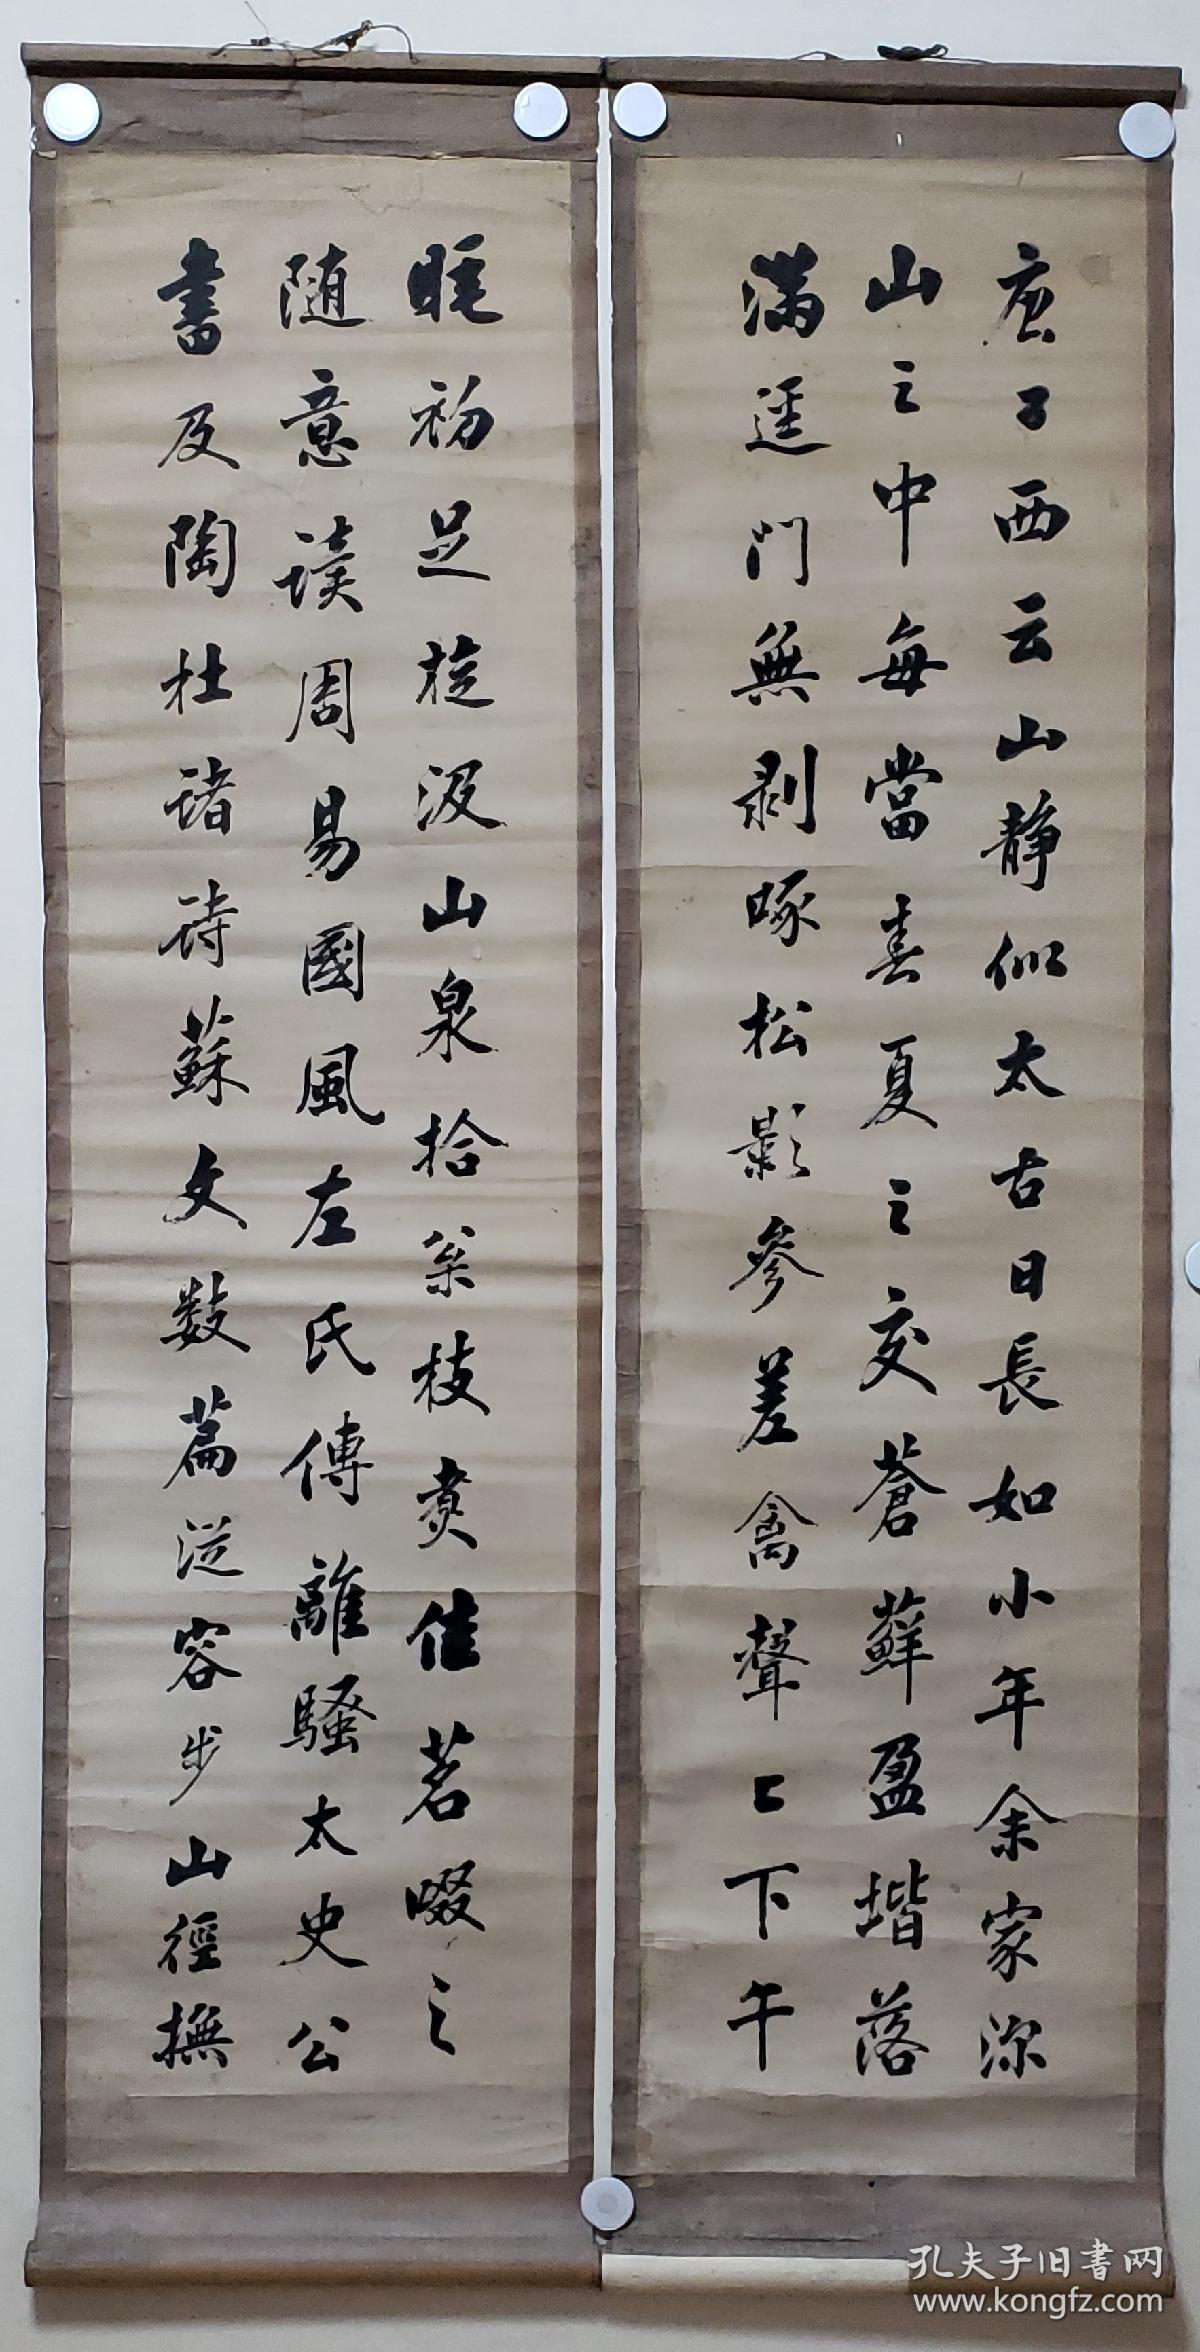 唐子西云山静似太古日長如小年余家深
山之中每當春夏之交蒼蘚盈堦落
滿逕門無剥啄松影參差禽聲上下午
睡初足旋汲山泉拾枀枝煑佳茗啜之
随意讀周易國風左氏傳離騷太史公
書及陶杜諸詩蘇文数篇從容步山徑撫
孔夫子旧書网
www.kongfz.com